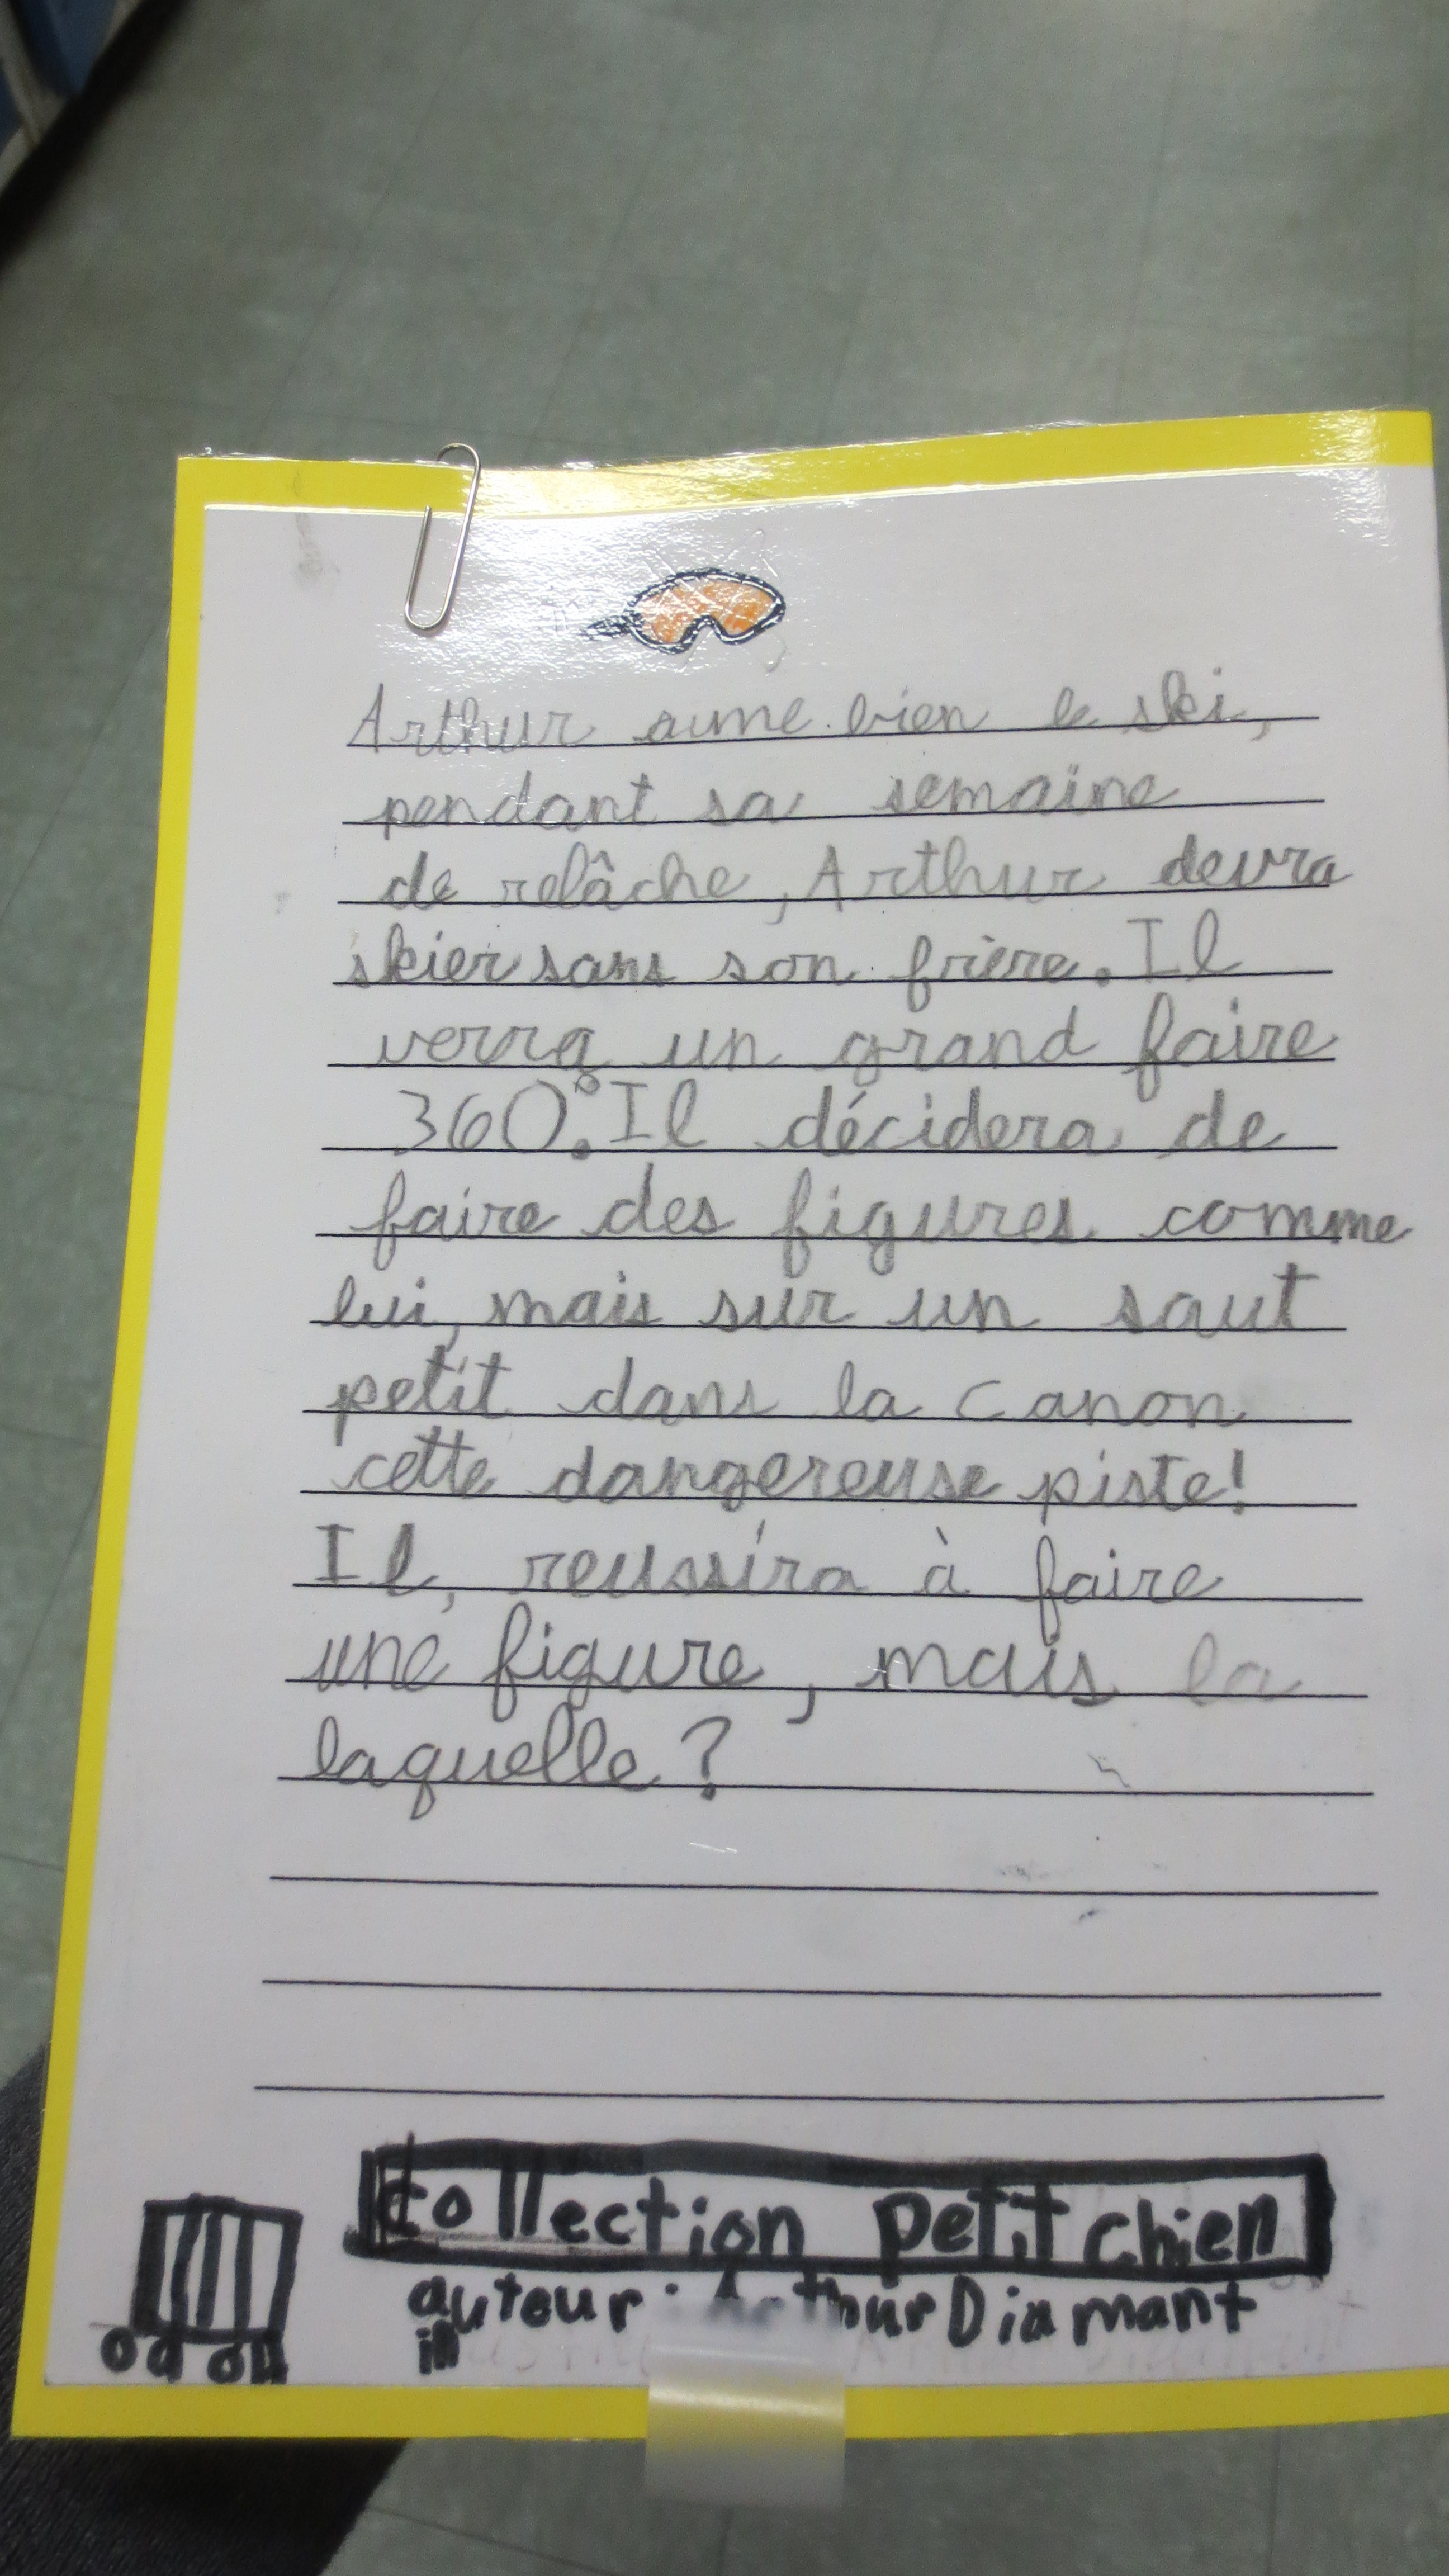 Arthur aime bien le ski,
pendant sa semaine
de relâche, Arthur devra
skier sans son frère. Il
verra un grand faire
360°. Il décidera de
faire des figures comme
lui, mais sur un saut
petit dans la canon
cette dangereuse piste!
Il, reussira à faire
une figure, mais la
laquelle?
Collection petit chien
auteur: Arthur Diamant